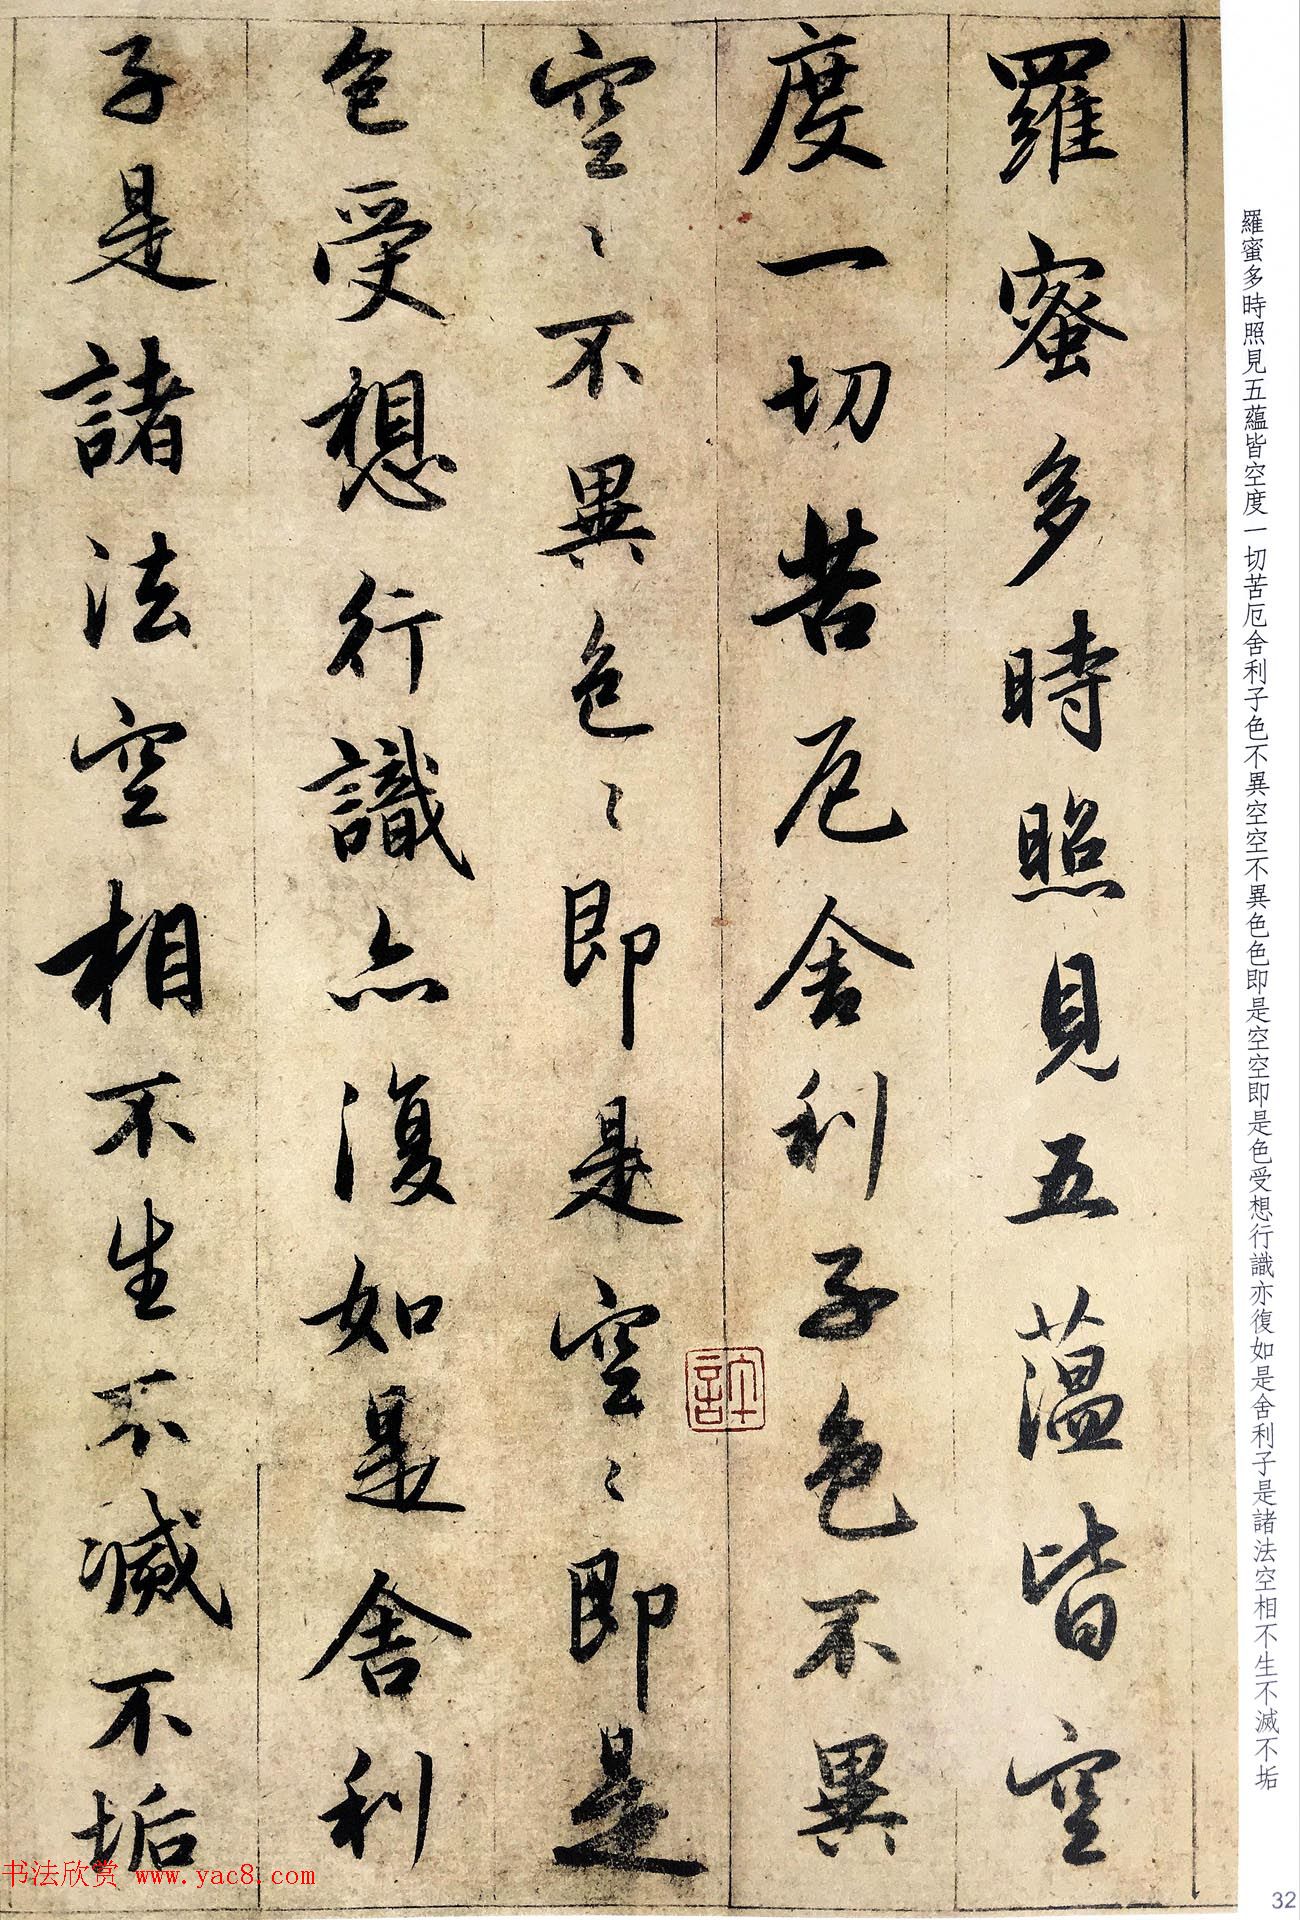 羅蜜多時照見五蘊皆空
度一切苦厄舍利子色不異
空〻不異色〻即是空〻即是
色受想行識亦復如是舍利
子是諸法空相不生不滅不垢
羅蜜多時照見五蘊皆空度一切苦厄舍利子色不異空空不異色色即是空空即是色受想行識亦復如是舍利子是諸法空相不生不滅不垢
书法欣赏 www.yac8.com
32